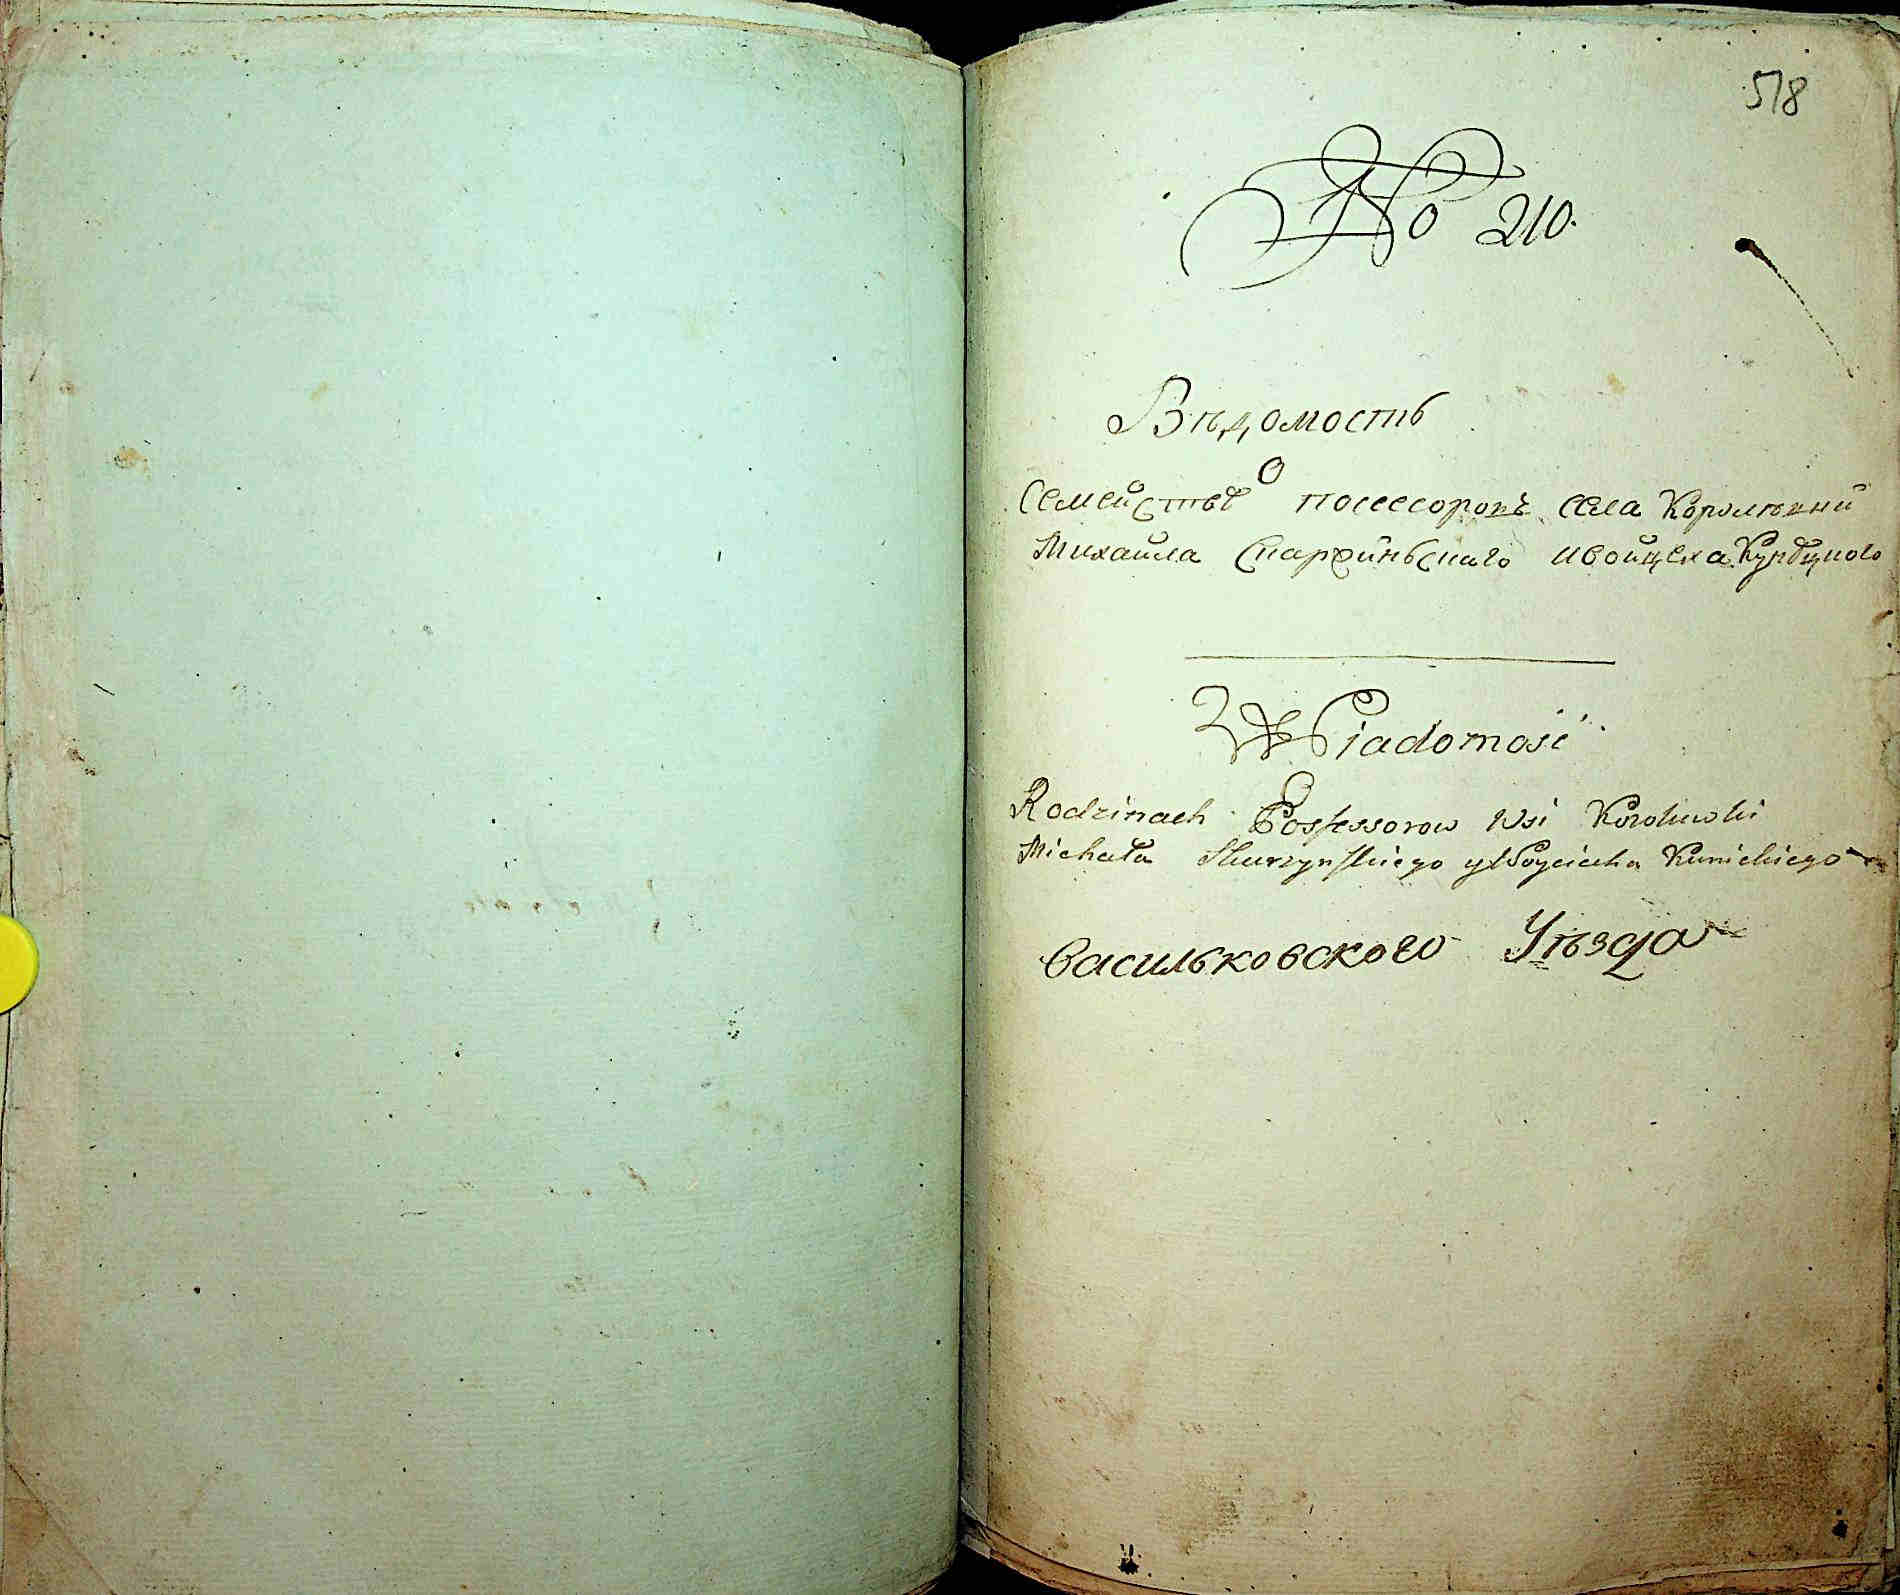 518
No 210.
Вѣдомость
О
Семействѣ посессоровъ села Королювки
Михаила Скаржинскаго и Войцеха
Wiadomość
O
Rodzinach Possessorow Wsi Korolowki
Michała Skurzynskiego y Woyciecha Kunickiego
Васильковского Уѣзда